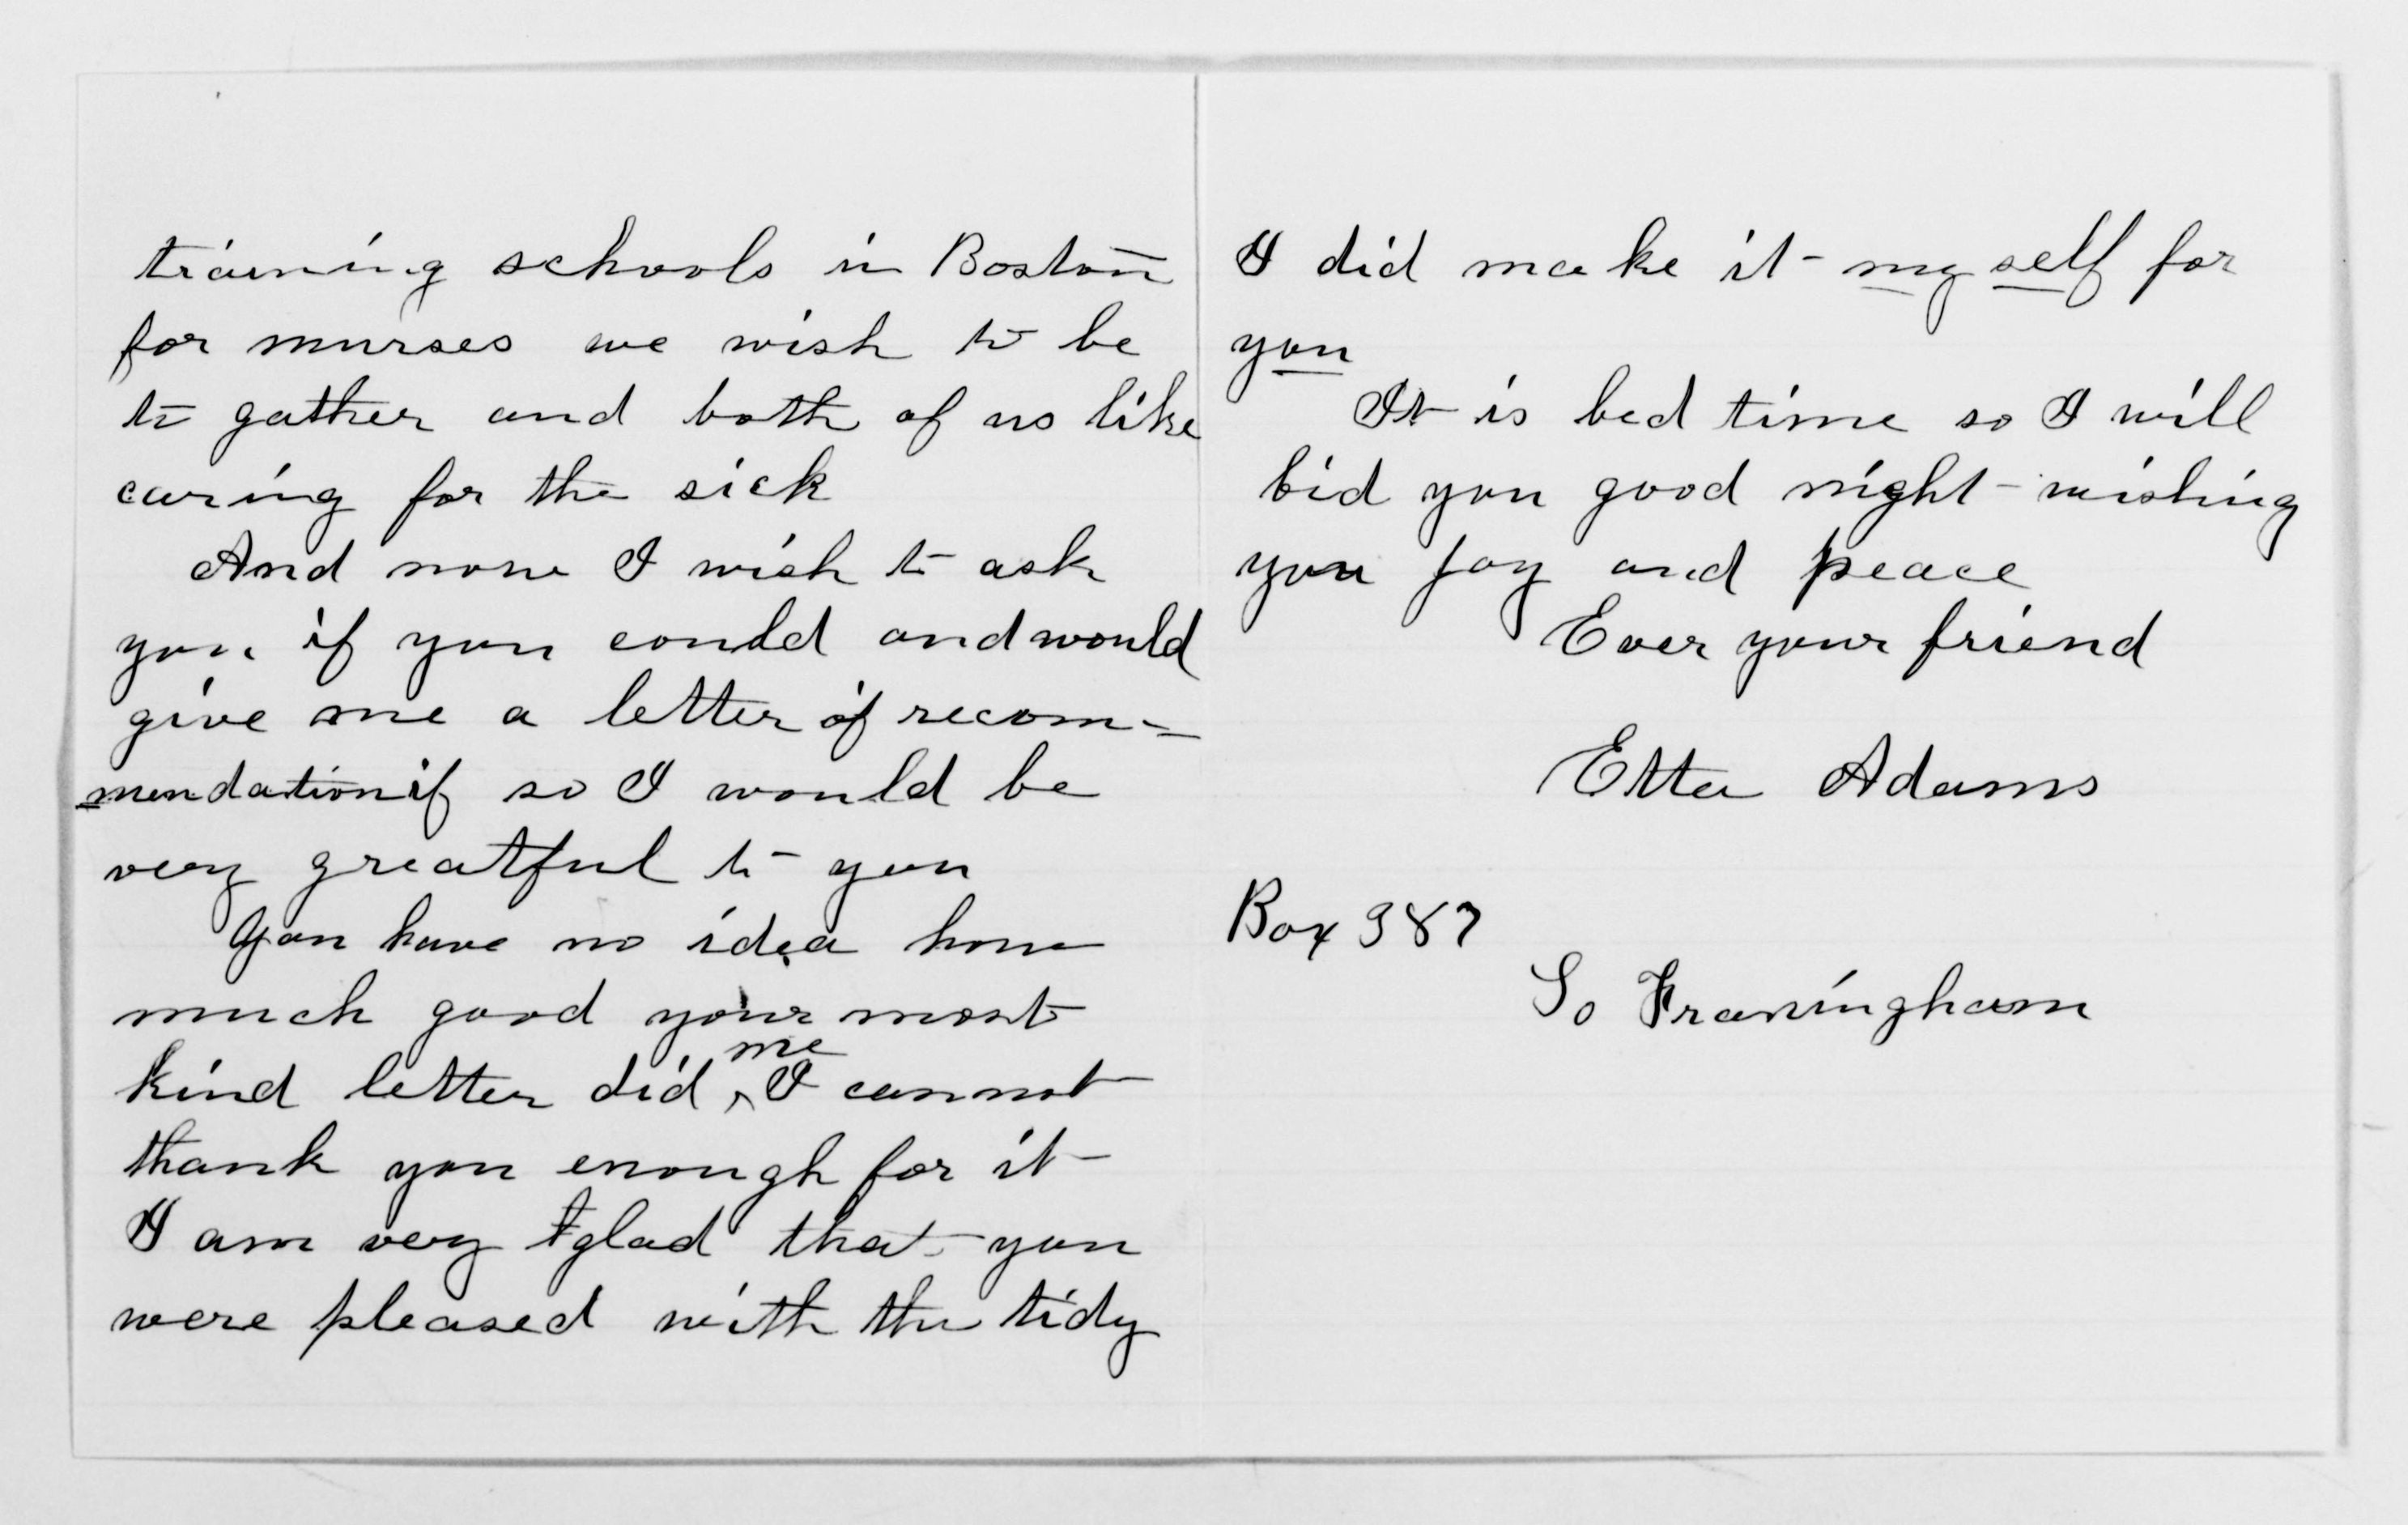 training schools in Boston
for nurses we wish to be
to gather and both of us like
caring for the sick
And now I wish to ask
you if you could and would
give me a letter of recom=
=mendation if so I would be
very greatful to you
You have no idea how
much good your most
kind letter did me I cannot
thank you enough for it
I am very glad that you
were pleased with the tidy
I did make it my self for
you
It is bed time so I will
bid you good night wishing
you joy and peace
Ever your friend
Etta Adams
Box 387
So Framingham